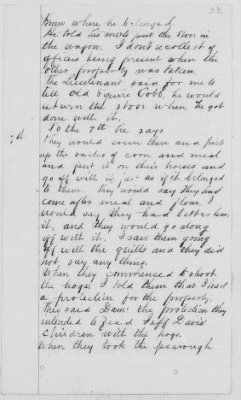 53
knew where he belonged,
He told his men put the door in
the wagon. I don't recollect of
officers being present when the
other property was taken.
The Lieutenant said for me to
tell old Squire Cobb, he would
return the door when he got
done with it,
To the 7th he says
7th They would come there and pick
up the sacks of corn and meal
and put it on their horses and
go off with it just as if it belonged
to them. they would say they had
come after meal and flour. I
would say they had better leave
it, and they would go along
off with it. I saw them going
off with the quilts and they did
not say any thing.
When they commenced to shoot
the hogs. I told them that I had
a protection for the property,
they said Damn the protection they
intended to feed Jeff Davis'
children with the hogs.
When they took the